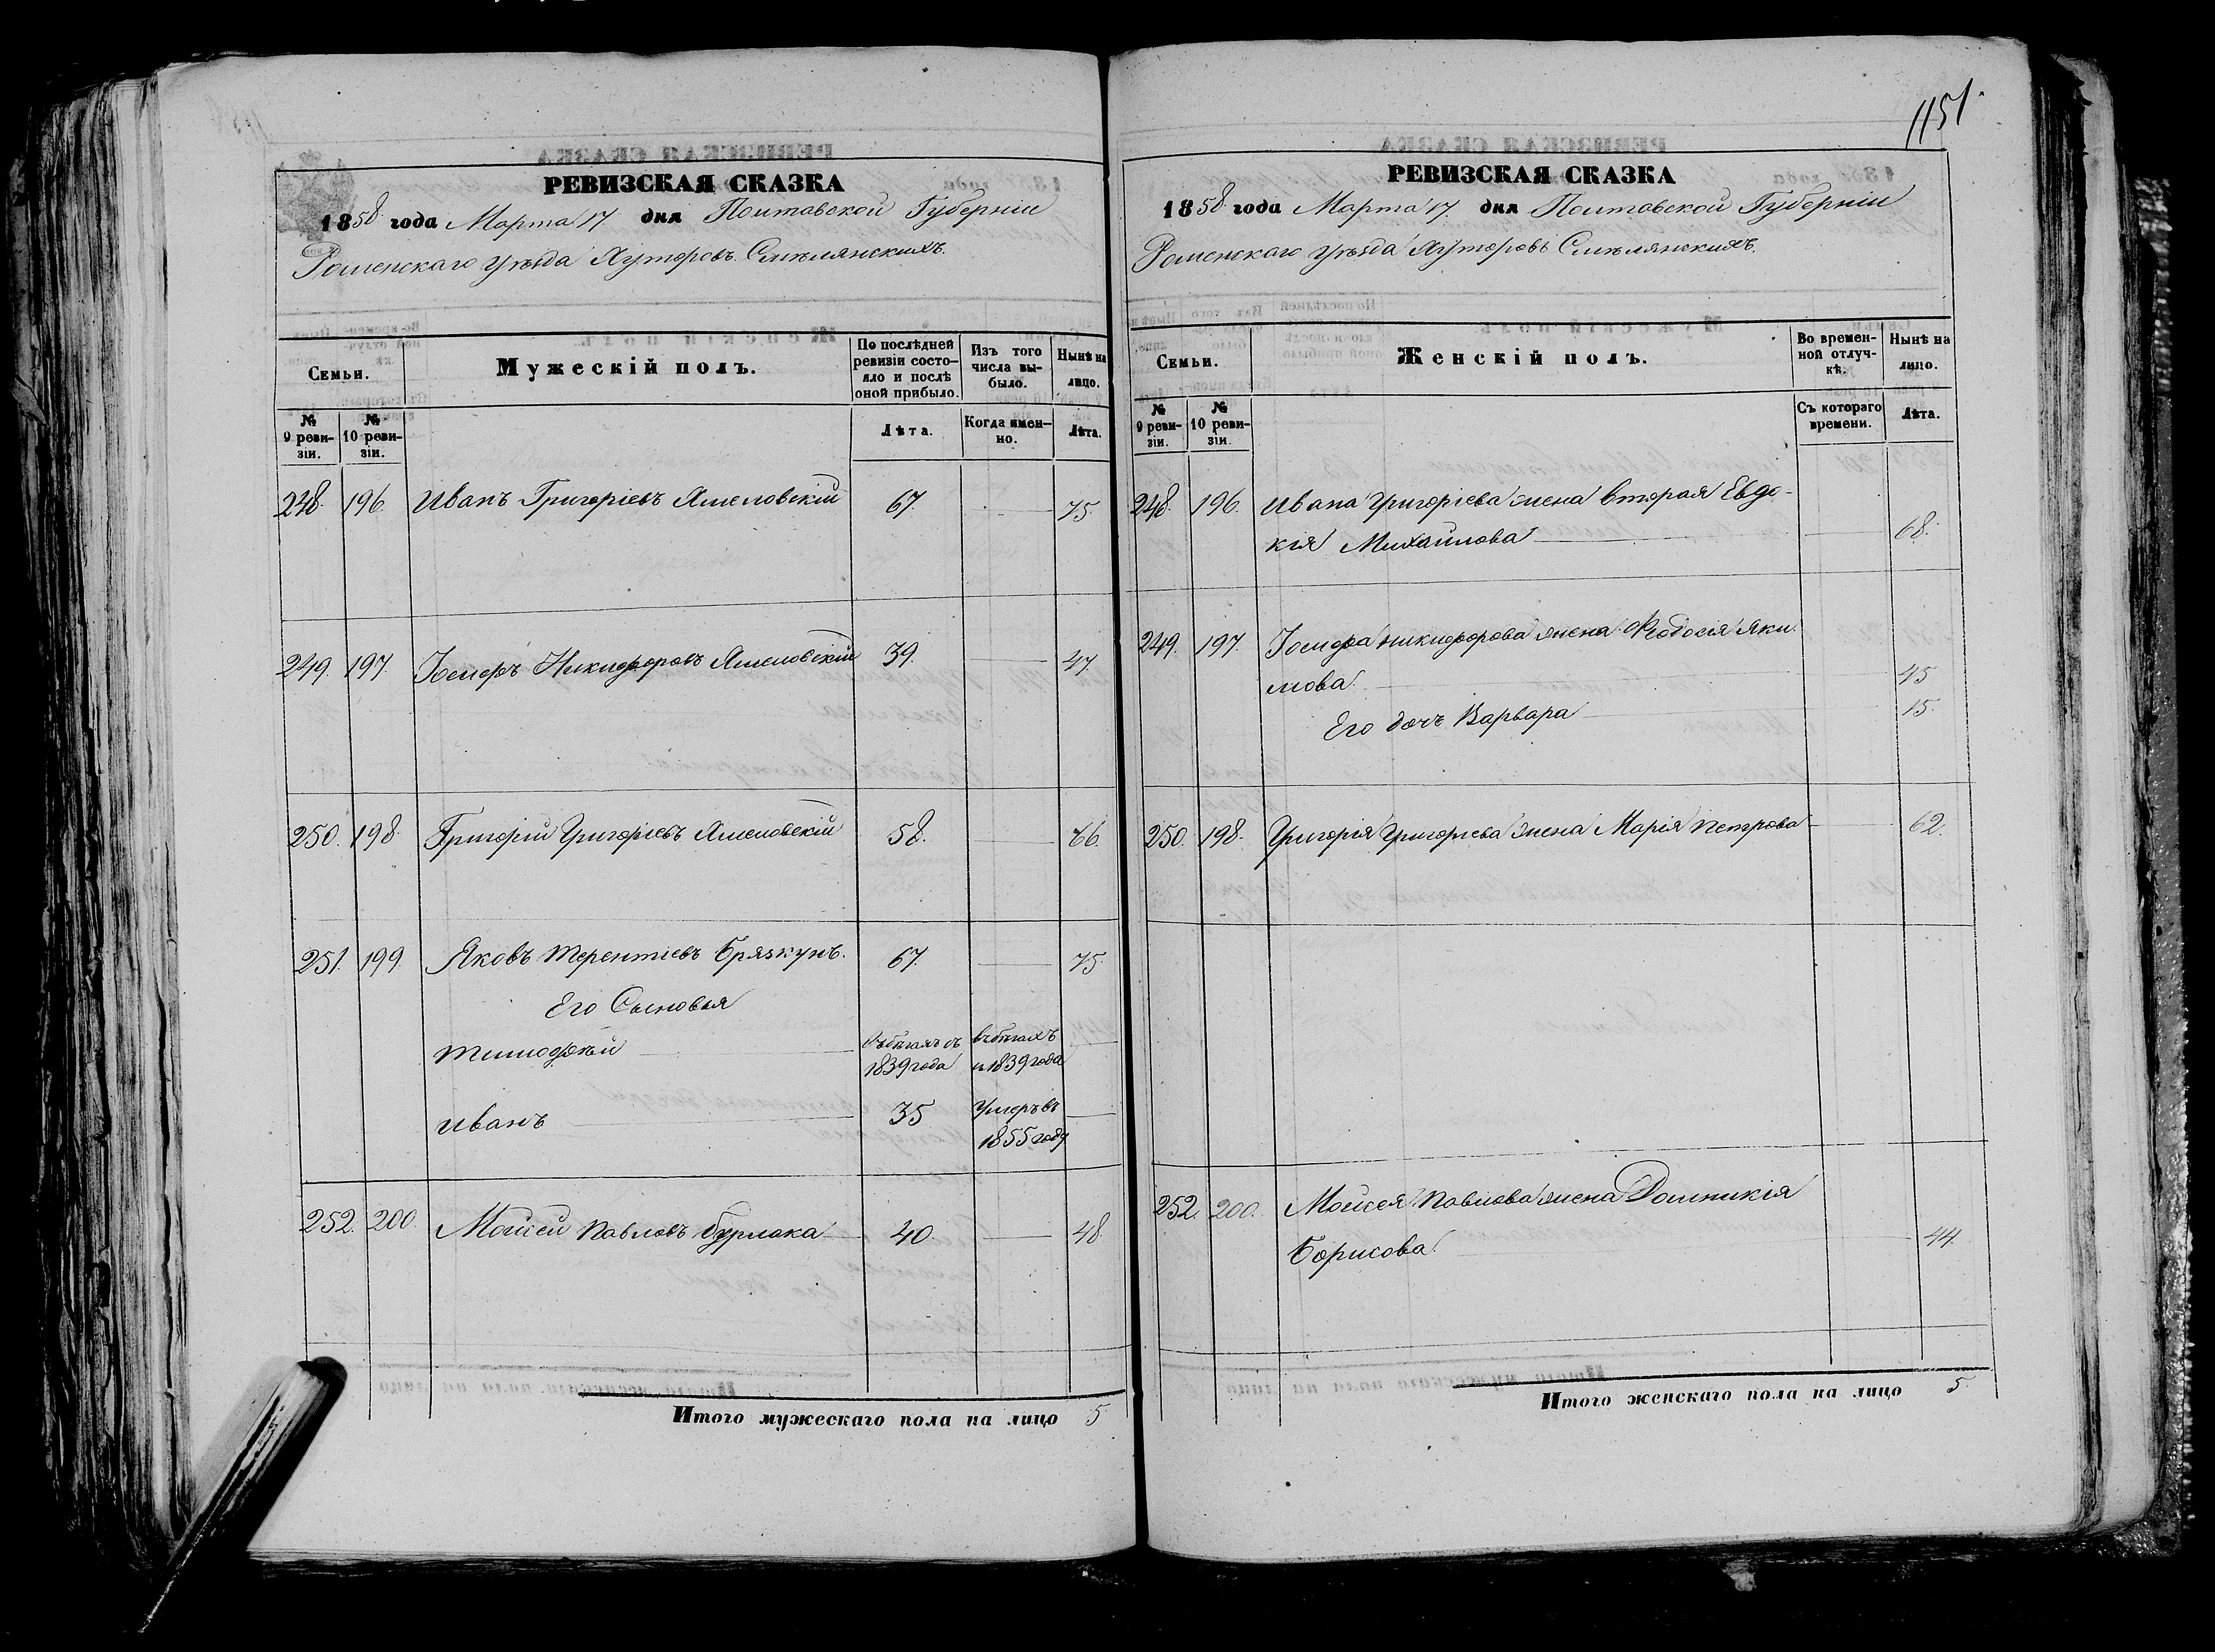 1151.
РЕВИЗСКАЯ СКАЗКА
1858 года Марта 17. дня Полтавской Губерніи
Роменскаго уѣзда Хуторовъ Смѣлянскихъ.
Семьи.
Мужескій полъ.
По послѣдней ревизіи состояло и послѣ оной прибыло.
Изъ того числа выбыло.
Нынѣ на лицо.
№ 9 ревизіи.
№ 10 ревизіи.
Лѣта.
Когда именно.
Лѣта.
248. 196. Иванъ Григоріевъ 67. 75.
249. 197. Іосифъ Никифоровъ 39. 47.
250. 198. Григорій Григоріевъ 58. 66.
251. 199. Яковъ Терентіевъ Брязкунъ. 67. 75.
Его Сыновья
Тимофѣй Въ бѣгахъ съ 1839 года въ бѣгахъ съ 1839 года
Иванъ 35 Умеръ въ 1855 году
252. 200. Мойсей Павловъ Бурлака 40. 48.
Итого мужескаго пола на лицо 5.
РЕВИЗСКАЯ СКАЗКА
1858 года Марта 17. дня Полтавской Губерніи
Роменскаго уѣзда Хуторовъ Смѣлянскихъ.
Семьи.
Женскій полъ.
Во временной отлучкѣ.
Нынѣ на лицо.
№ 9 ревизіи.
№ 10 ревизіи.
Съ котораго времени.
Лѣта.
248. 196. Ивана Григоріева жена вторая Евдо-
кія Михайлова 68.
249. 197. Іосифа Никифорова жена Феодосія Яки-
мова. 45
Его дочь Варвара 15.
250. 198. Григорія Григоріева жена Марія Петрова 62.
252. 200. Мойсея Павлова жена Домникія
Борисова. 44.
Итого женскаго пола на лицо 5.